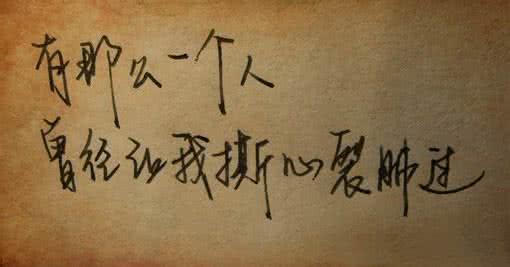 有那么一个人
曾经让我撕心裂肺过